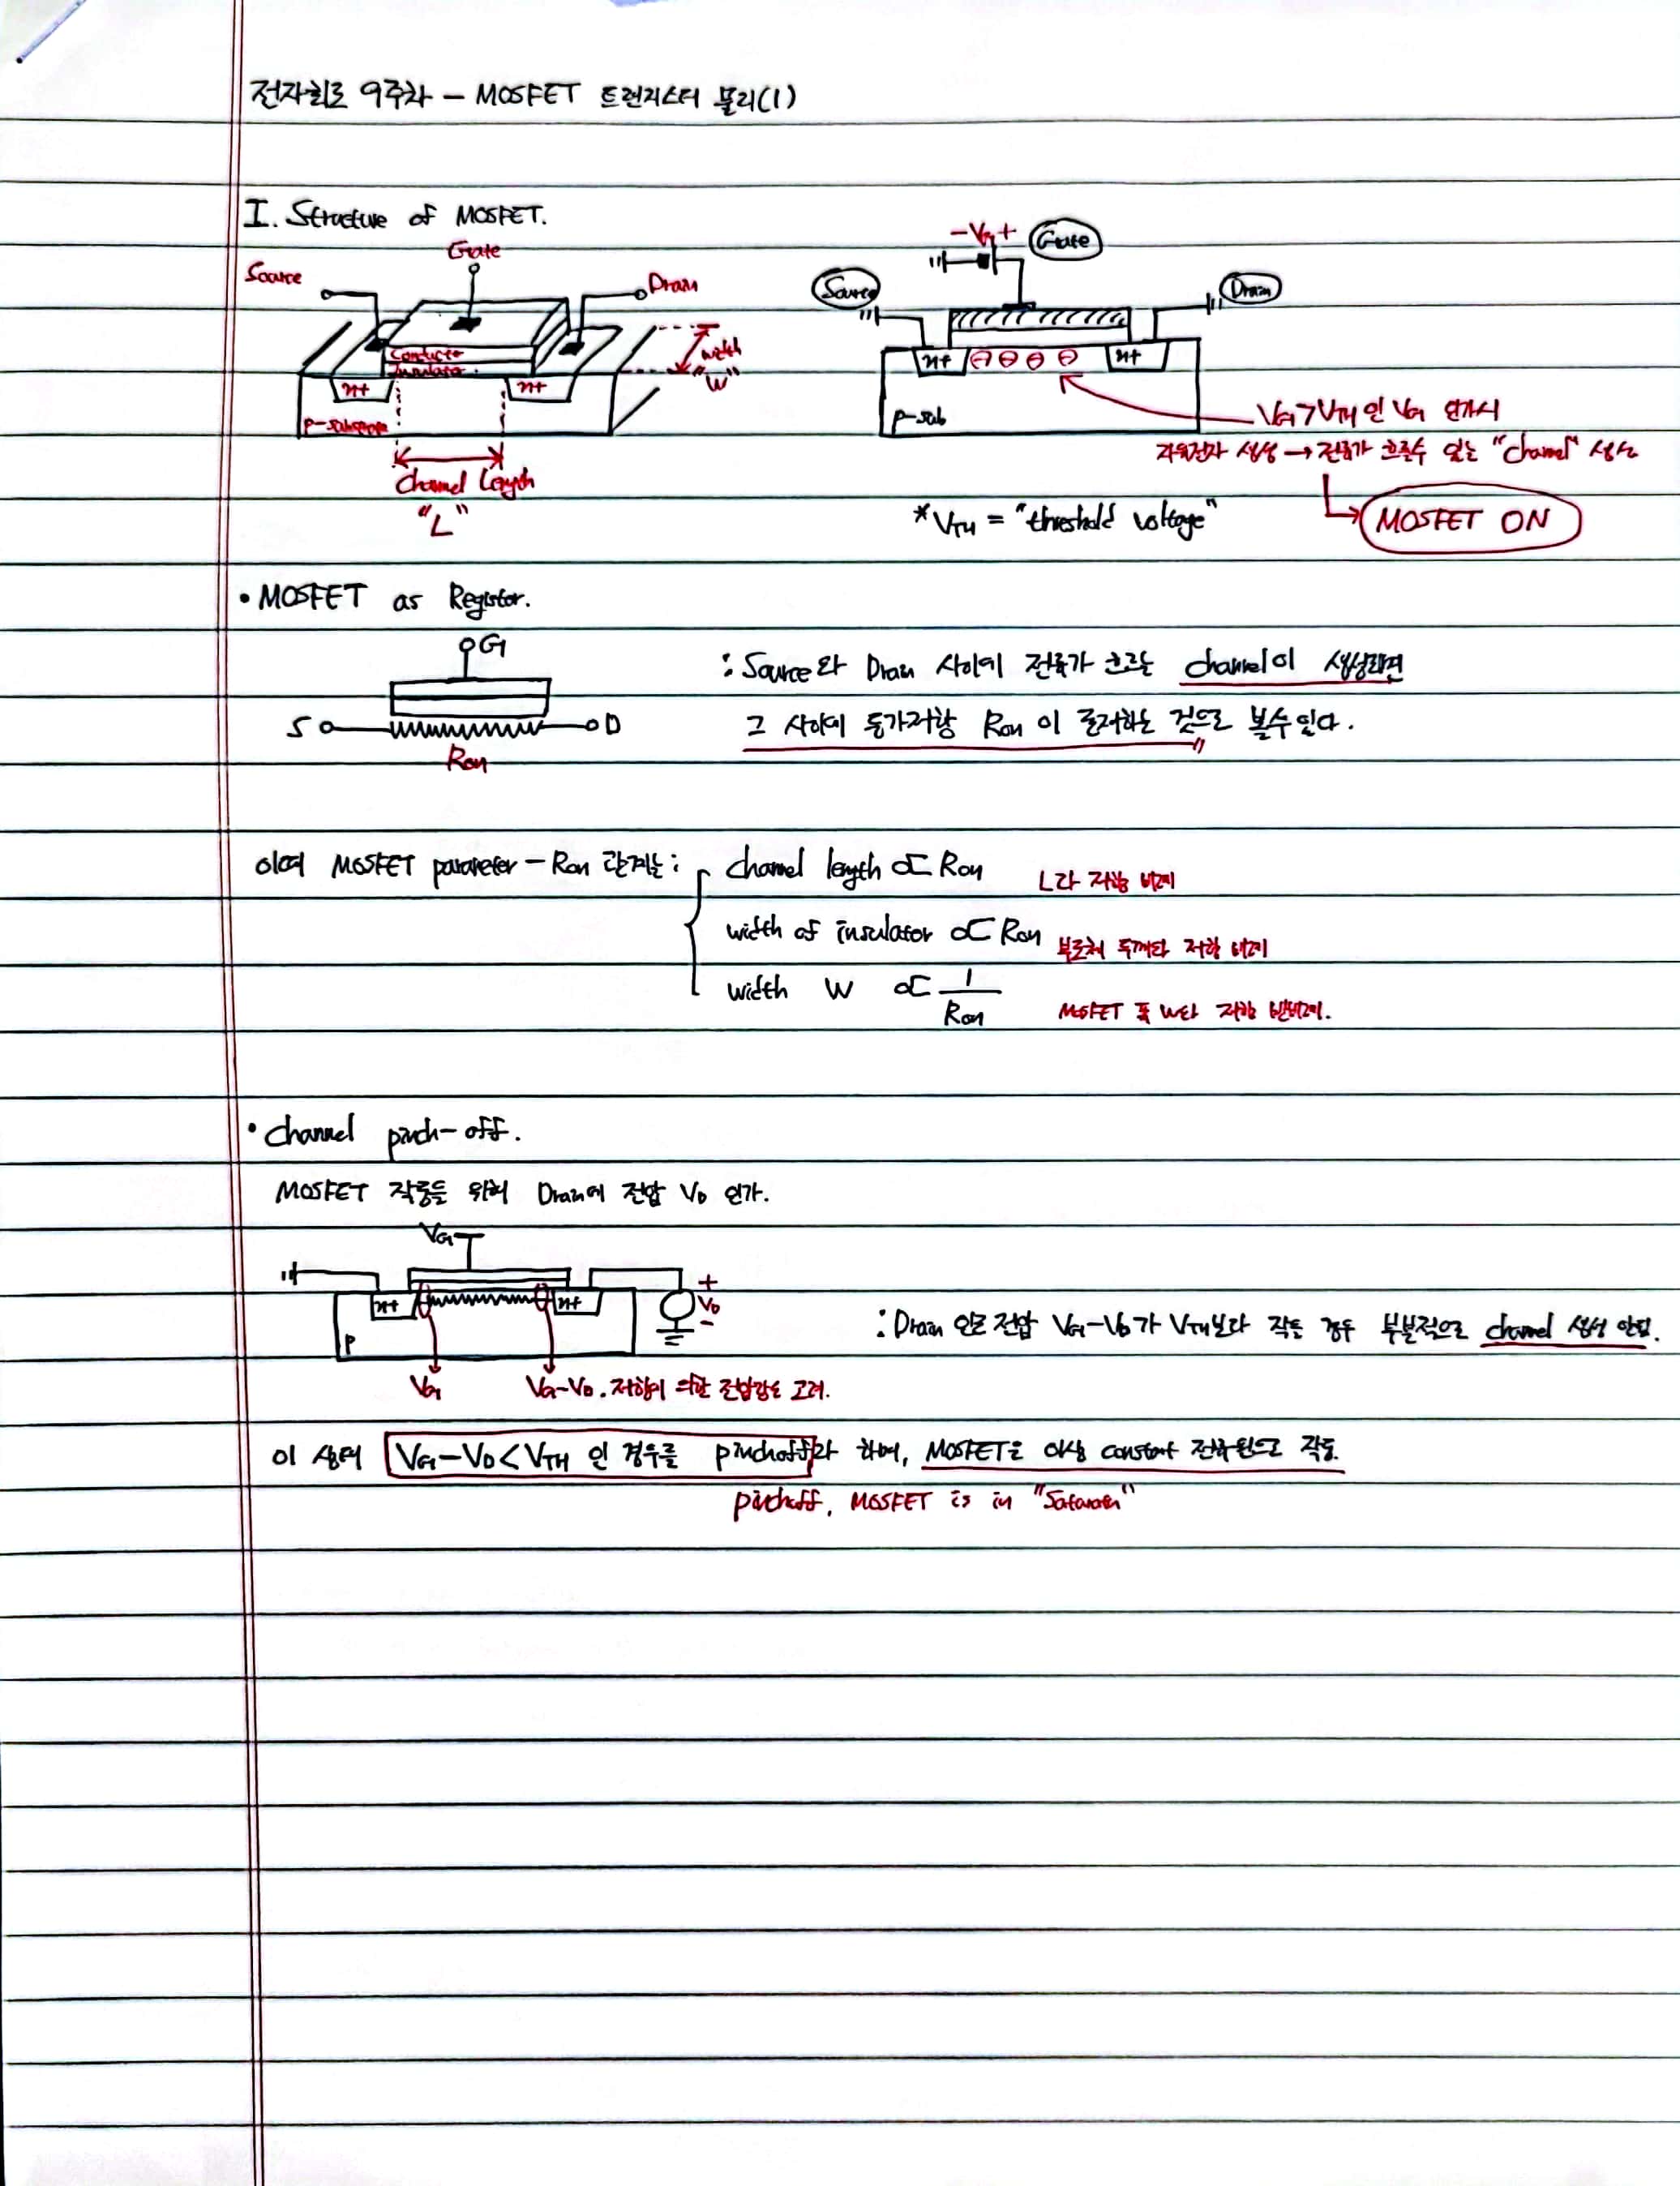 전자회로 9주차 - MOSFET 트랜지스터 물리(1)
I. Structure of MOSFET.
Source
Gate
Drain
Conductor
Insulator
n+
n+
p-substrate
width
"W"
Channel Length
"L"
- VG +
Gate
Source
Drain
n+
n+
p-sub
VG > VTH 인 VG 인가시
자유전자 생성 → 전류가 흐를수 있는 "Channel" 생성
MOSFET ON
*VTH = "threshold voltage"
• MOSFET as Register.
G
S
D
Ron
: Source와 Drain 사이에 전류가 흐르는 channel이 생성되면
그 사이에 등가저항 Ron 이 존재하는 것으로 볼수있다.
이때 MOSFET parameter - Ron 관계는 :
channel length ∝ Ron
L과 저항 비례
width of insulator ∝ Ron
부도체 두께와 저항 비례
width W ∝ 1/Ron
MOSFET 폭 W와 저항 반비례.
• Channel pinch-off.
MOSFET 작동을 위해 Drain에 전압 VD 인가.
VG
n+
n+
P
+
VD
-
VG
VG-VD. 저항에 의한 전압강도 고려.
: Drain 인근 전압 VG-VD가 VTH보다 작은 경우 부분적으로 channel 생성 안됨.
이 상태 VG-VD < VTH 인 경우를 pinchoff라 하며, MOSFET은 이상 constant 전류원으로 작동.
pinchoff, MOSFET is in "Saturation"